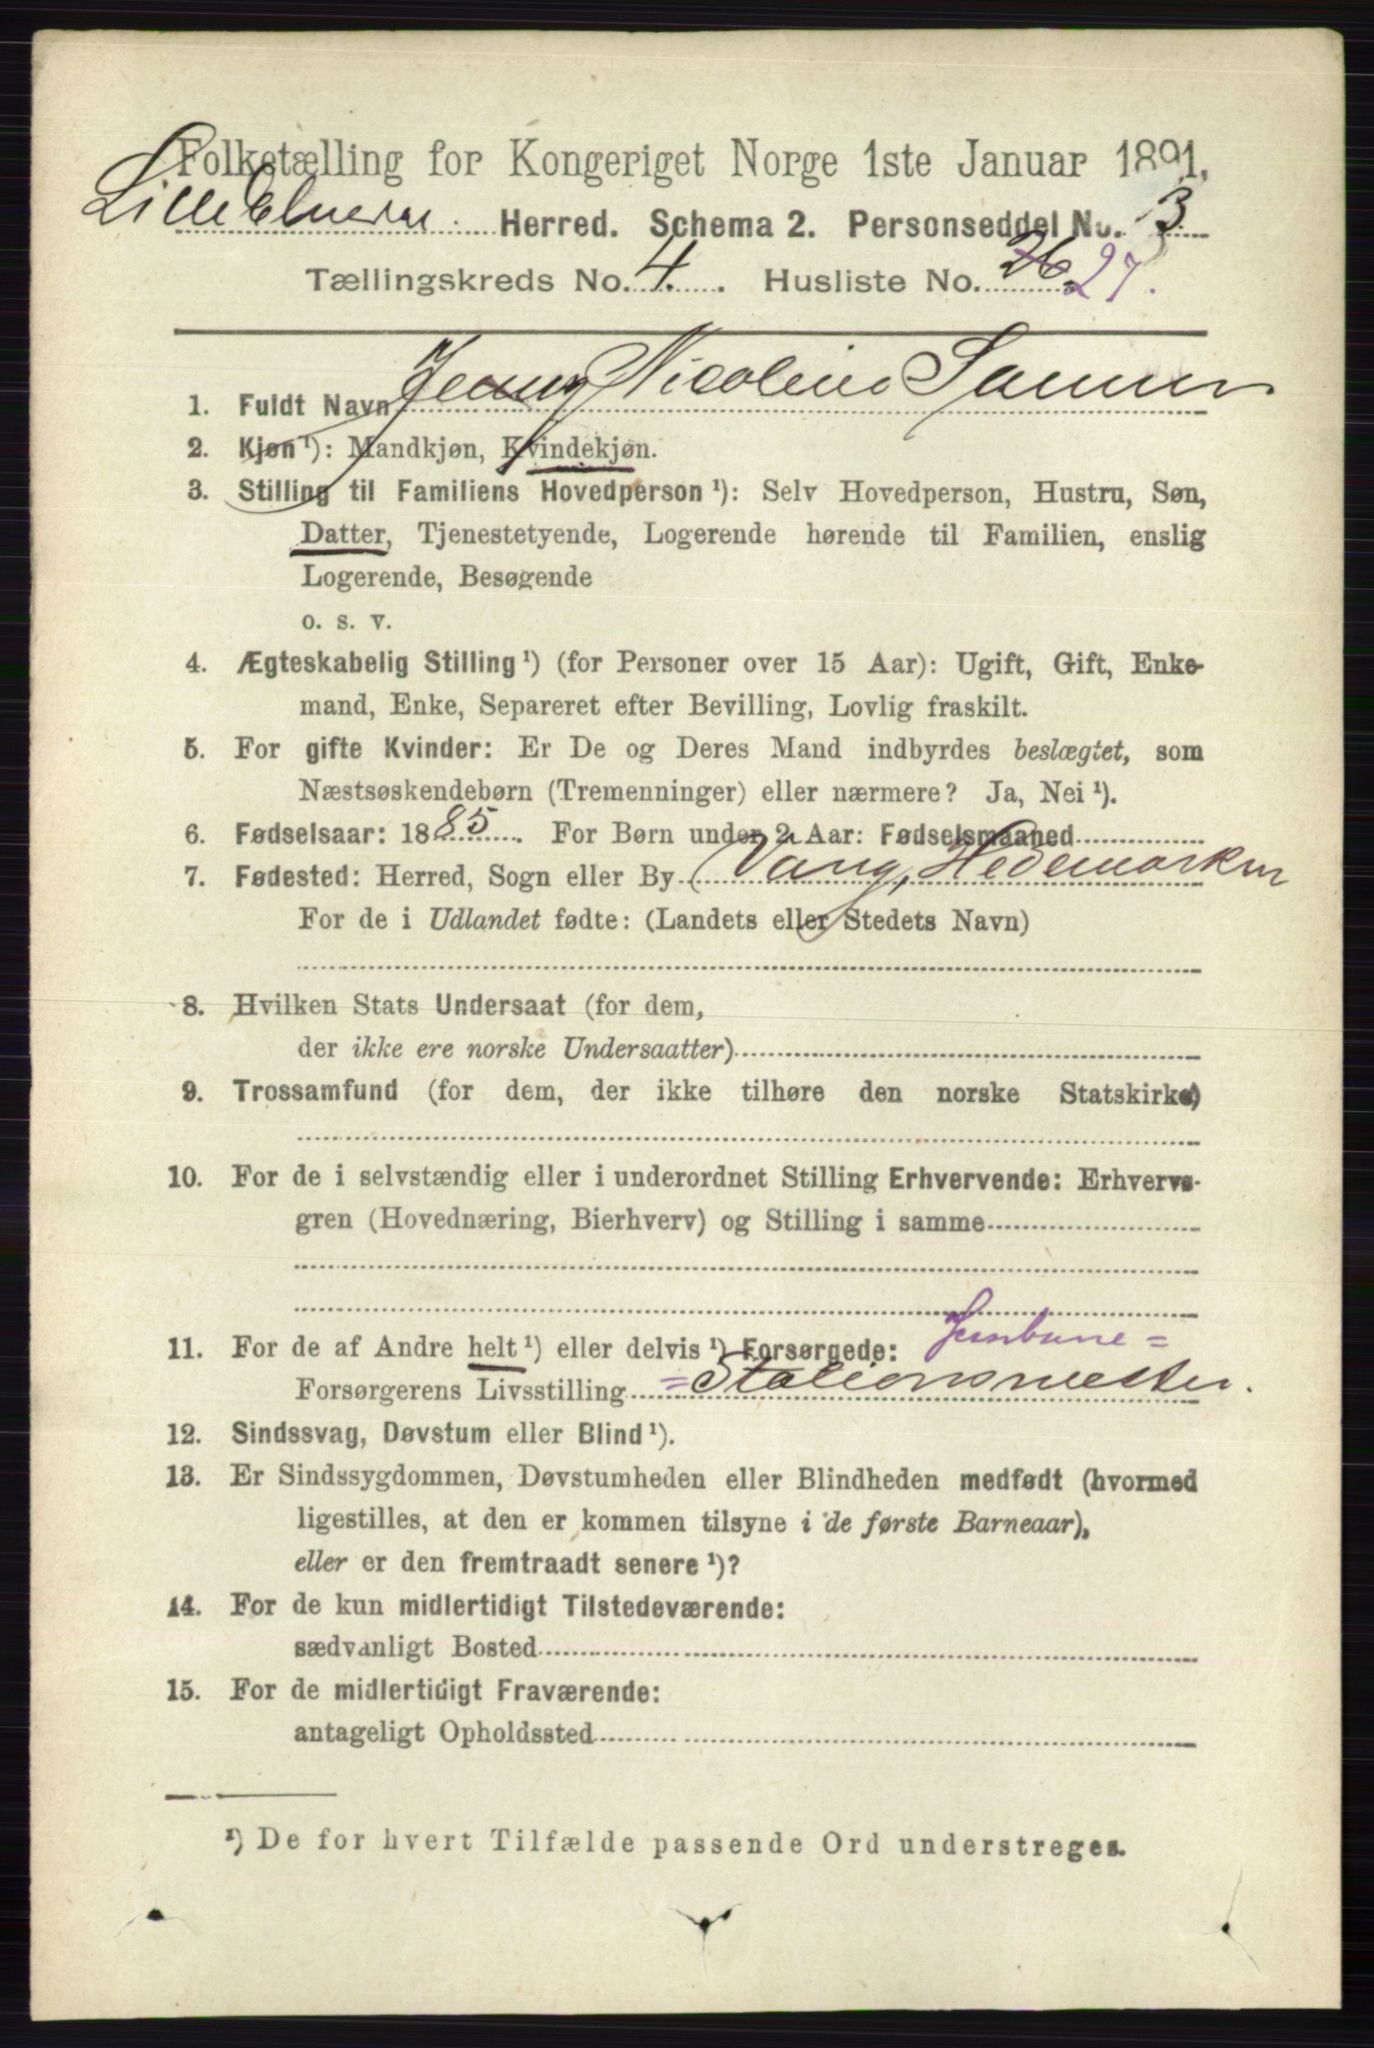 Folketælling for Kongeriget Norge 1ste Januar 1891.
Lille Elverum Herred. Schema 2. Personseddel No. 3
Tællingskreds No. 4. Husliste No. 26 27.
1. Fuldt Navn Jenny Nicoline Sanner
2. Kjøn ¹): Mandkjøn, Kvindekjøn.
3. Stilling til Familiens Hovedperson ¹): Selv Hovedperson, Hustru, Søn,
Datter, Tjenestetyende, Logerende hørende til Familien, enslig
Logerende, Besøgende
o. s. v.
4. Ægteskabelig Stilling ¹) (for Personer over 15 Aar): Ugift, Gift, Enke-
mand, Enke, Separeret efter Bevilling, Lovlig fraskilt.
5. For gifte Kvinder: Er De og Deres Mand indbyrdes beslægtet, som
Næstsøskendebørn (Tremenninger) eller nærmere? Ja, Nei ¹).
6. Fødselsaar: 1885. For Børn under 2 Aar: Fødselsmaaned
7. Fødested: Herred, Sogn eller By Vang, Hedemarken
For de i Udlandet fødte: (Landets eller Stedets Navn)
8. Hvilken Stats Undersaat (for dem,
der ikke ere norske Undersaatter)
9. Trossamfund (for dem, der ikke tilhøre den norske Statskirke)
10. For de i selvstændig eller i underordnet Stilling Erhvervende: Erhvervs-
gren (Hovednæring, Bierhverv) og Stilling i samme
11. For de af Andre helt ¹) eller delvis ¹) Forsørgede: Jernbane=
Forsørgerens Livsstilling =Stationsmester.
12. Sindssvag, Døvstum eller Blind ¹).
13. Er Sindssygdommen, Døvstumheden eller Blindheden medfødt (hvormed
ligestilles, at den er kommen tilsyne i de første Barneaar),
eller er den fremtraadt senere ¹)?
14. For de kun midlertidigt Tilstedeværende:
sædvanligt Bosted
15. For de midlertidigt Fraværende:
antageligt Opholdssted
¹) De for hvert Tilfælde passende Ord understreges.